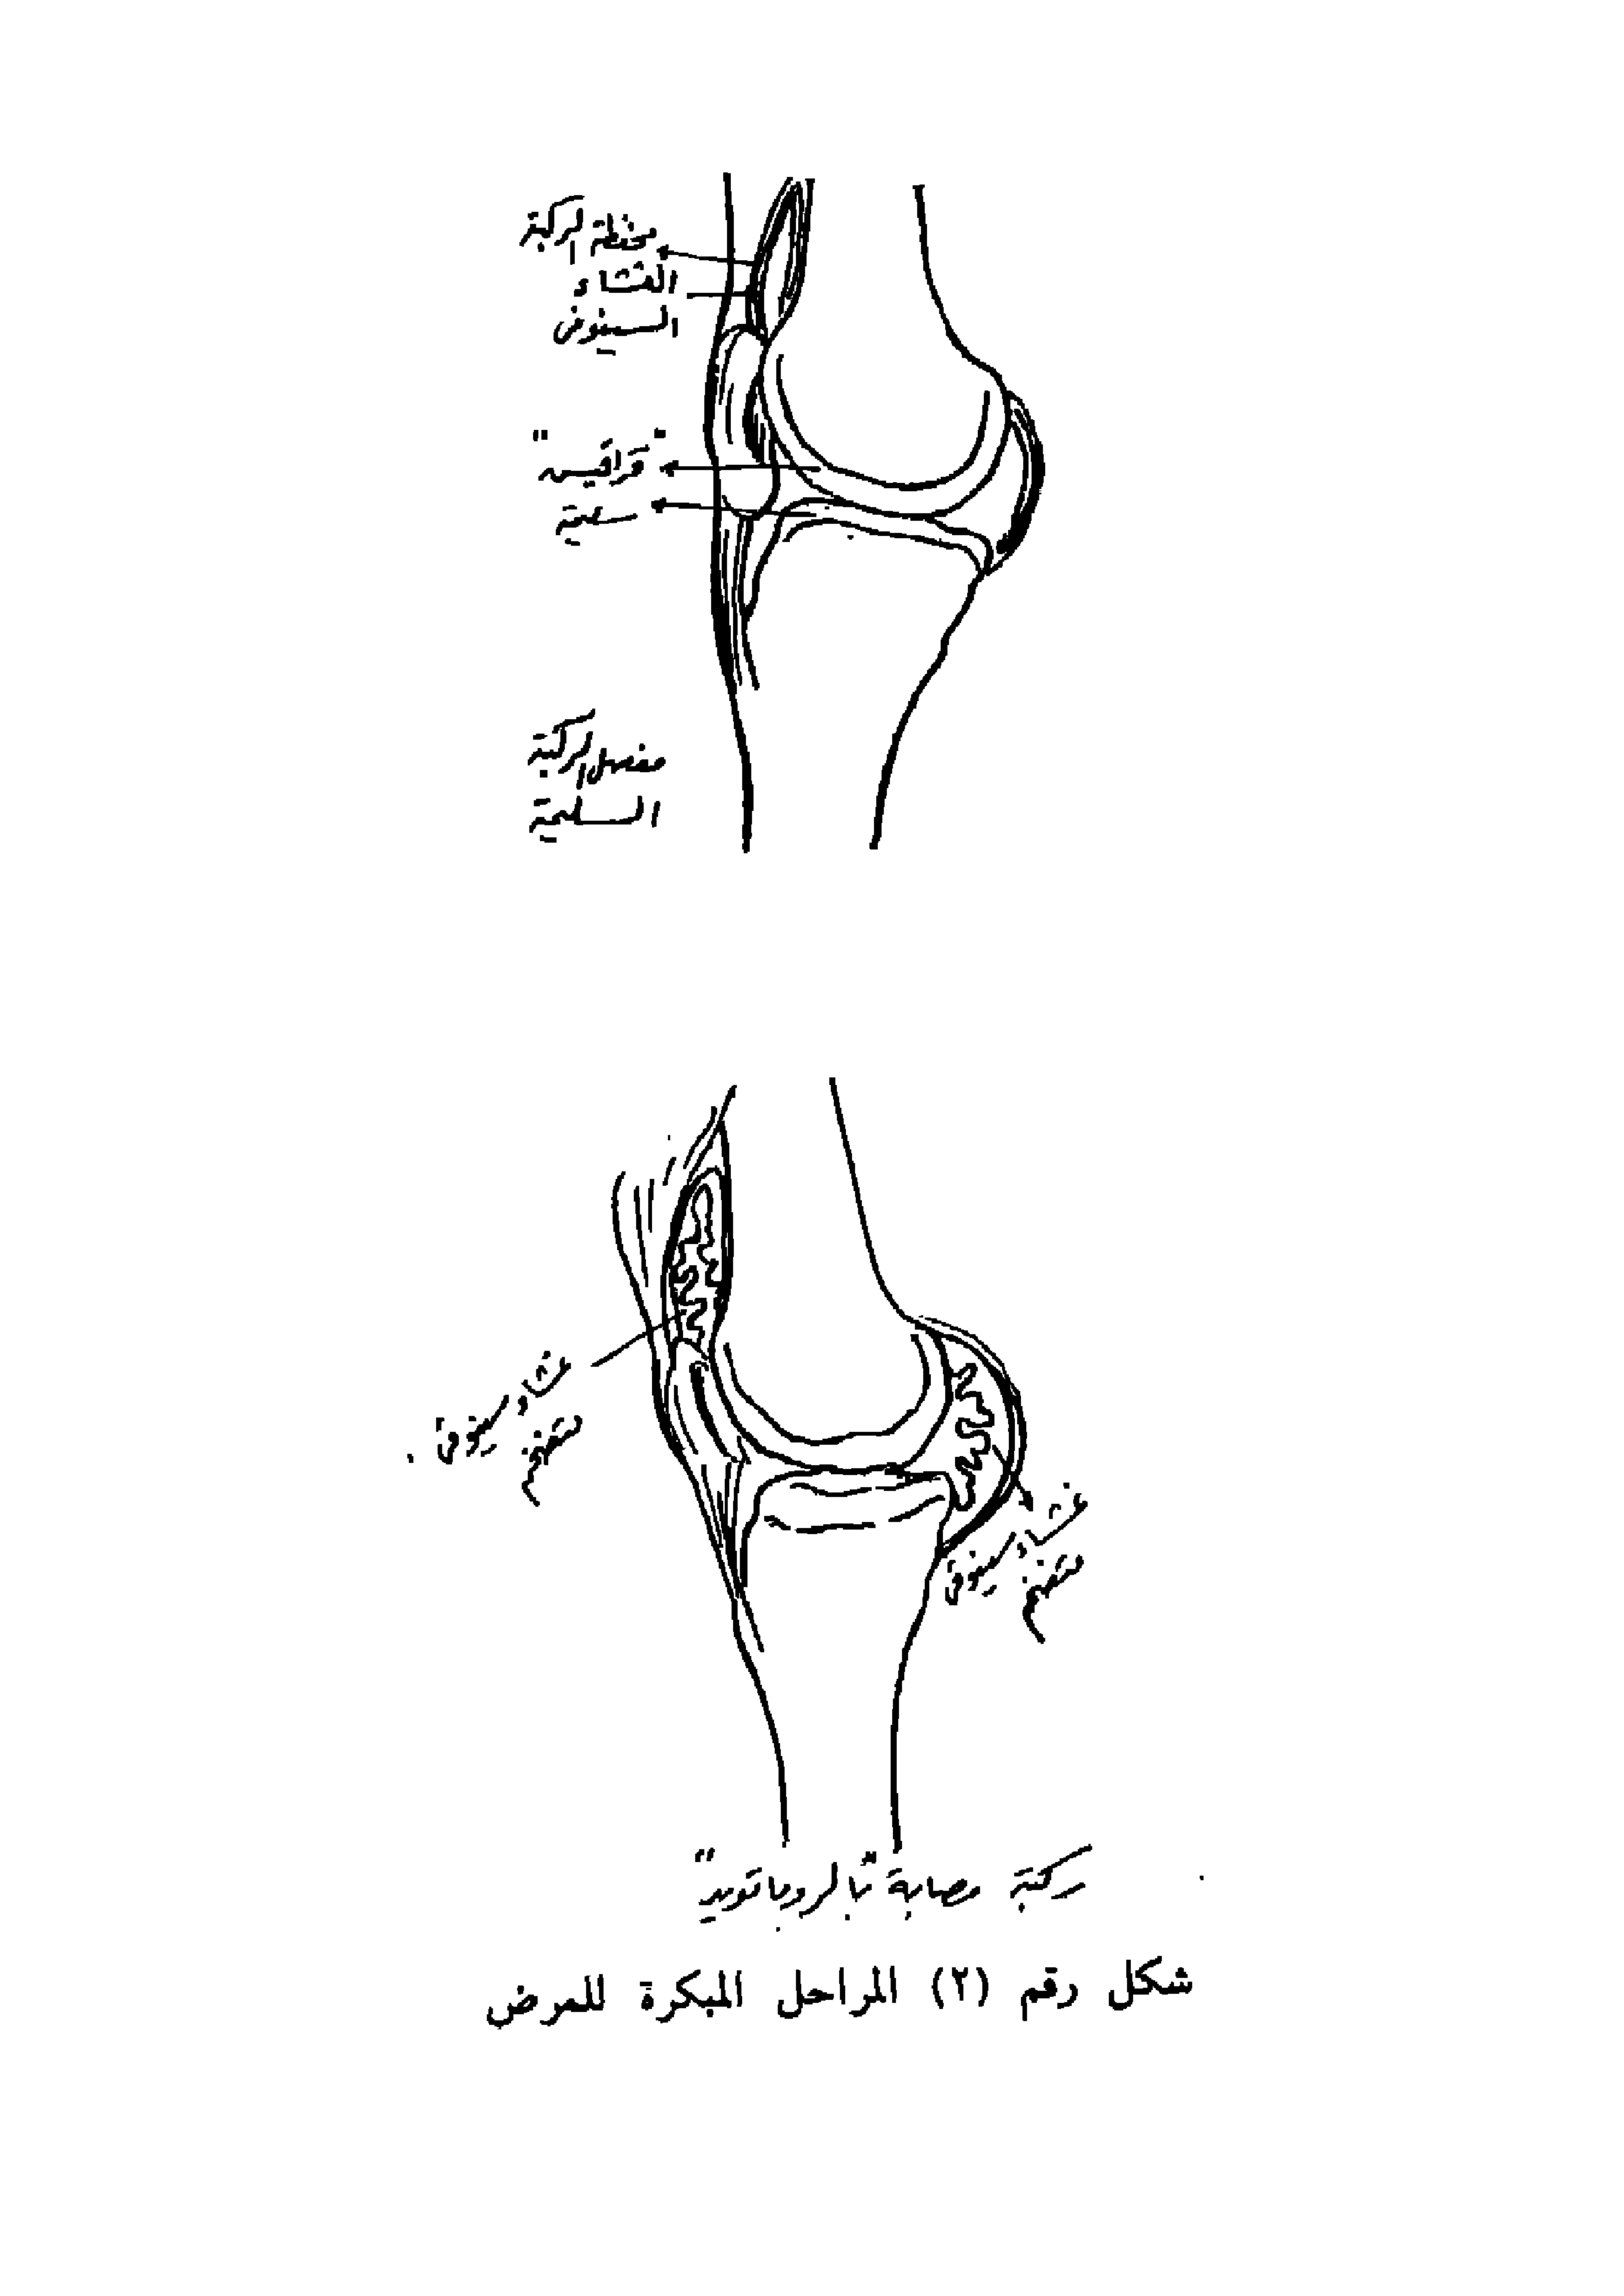 محفظة الركبة
الغشاء
السينوفى
"قراقيش"
سليمة
مفصل الركبة
السليمة
غشاء سينوفى
متضخم
غشاء سينوفى
متضخم
ركبة مصابة "بالروماتويد"
شكل رقم (٢) المراحل المبكرة للمرض